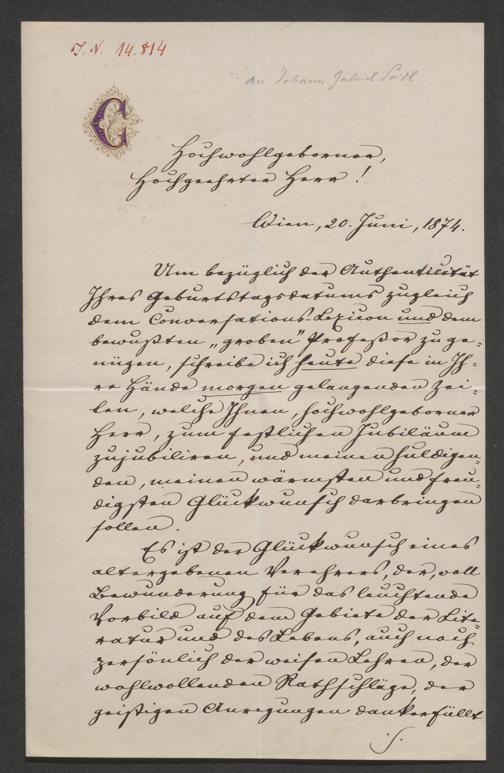 J. N. 14.814
an Johann Gabriel Seidl
C
Hochwohlgeborner,
Hochgeehrter Herr!
Wien, 20. Juni, 1874.
Um bezüglich der Authenticität
Ihres Geburtstagsdatums zugleich
dem Conversations-Lexicon und dem
bewußten „groben" Professor zu ge-
nügen, schreibe ich heute diese in Ih-
re Hände morgen gelangenden Zei-
len, welche Ihnen, hochwohlgeborner
Herr, zum festlichen Jubiläum
zujubiliren, und meinen huldigen-
den, meinen wärmsten und freu-
digsten Glückwunsch darbringen
sollen.
Es ist der Glückwunsch eines
altergebenen Verehrers, der, voll
Bewunderung für das leuchtende
Vorbild auf dem Gebiete der Lite-
ratur und des Lebens, auch noch
persönlich der weisen Lehren, der
wohlwollenden Rathschläge, der
geistigen Anregungen dankerfüllt